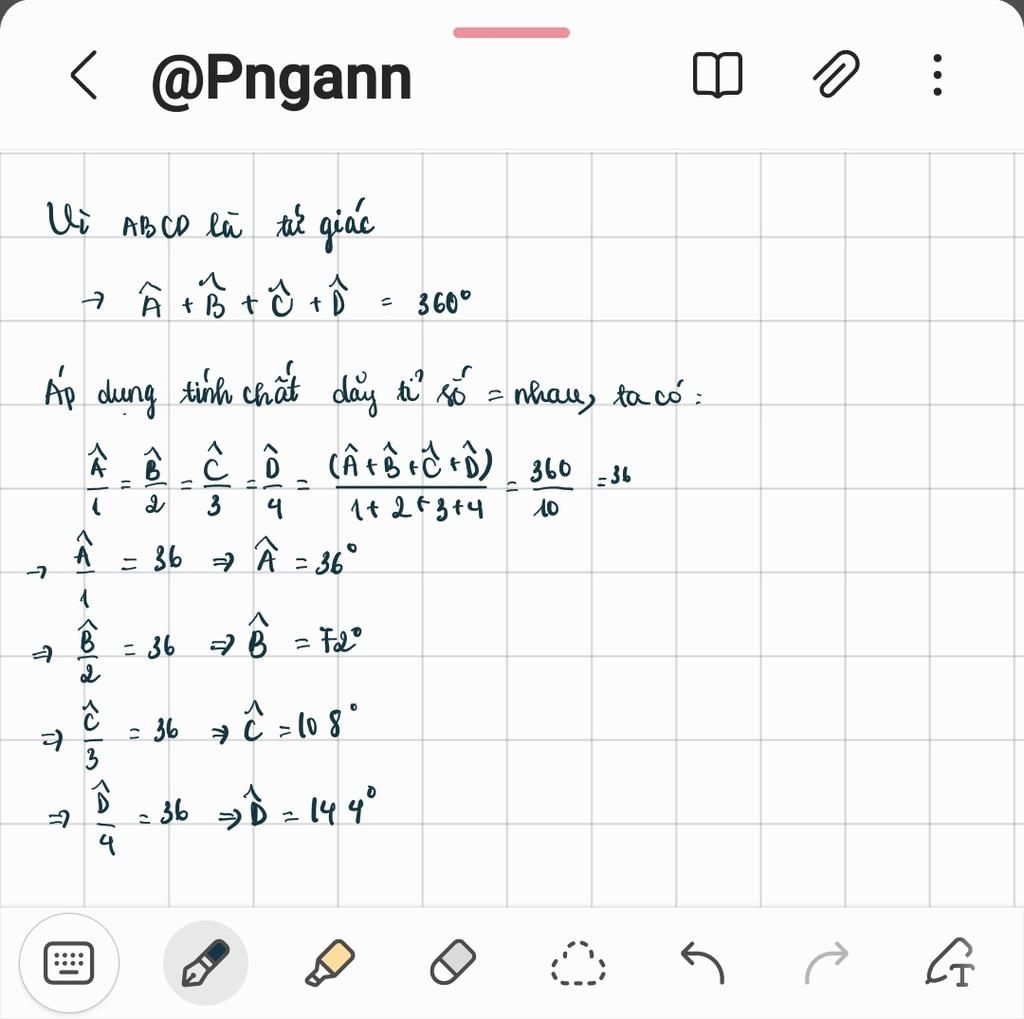 @Pngann
Vì ABCD là tứ giác
→ Â + B̂ + Ĉ + D̂ = 360°
Áp dụng tính chất dãy tỉ số = nhau, ta có :
Â/1 = B̂/2 = Ĉ/3 = D̂/4 = (Â + B̂ + Ĉ + D̂)/1+2+3+4 = 360/10 = 36
→ Â/1 = 36 ⇒ Â = 36°
⇒ B̂/2 = 36 ⇒ B̂ = 72°
⇒ Ĉ/3 = 36 ⇒ Ĉ = 108°
⇒ D̂/4 = 36 ⇒ D̂ = 144°